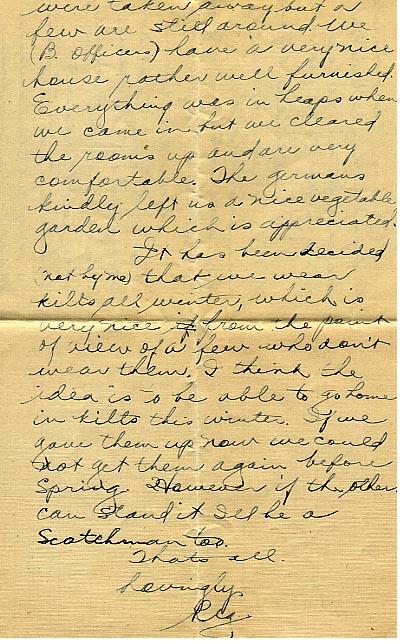 were taken away but a
few are still around. We
(B. Officers) have a very nice
house rather well furnished.
Everything was in heaps when
we came in but we cleared
the rooms up and are very
comfortable. The germans
kindly left us a nice vegetable
garden which is appreciated.
It has been decided
(not by me) that we wear
kilts all winter, which is
very nice from the point
of view of a few who don't
wear them. I think the
idea is to be able to go home
in kilts this winter. If we
gave them up now we could
not get them again before
Spring. However if the other
can stand it I'll be a
Scotchman too.
Thats all.
Lovingly
Reg